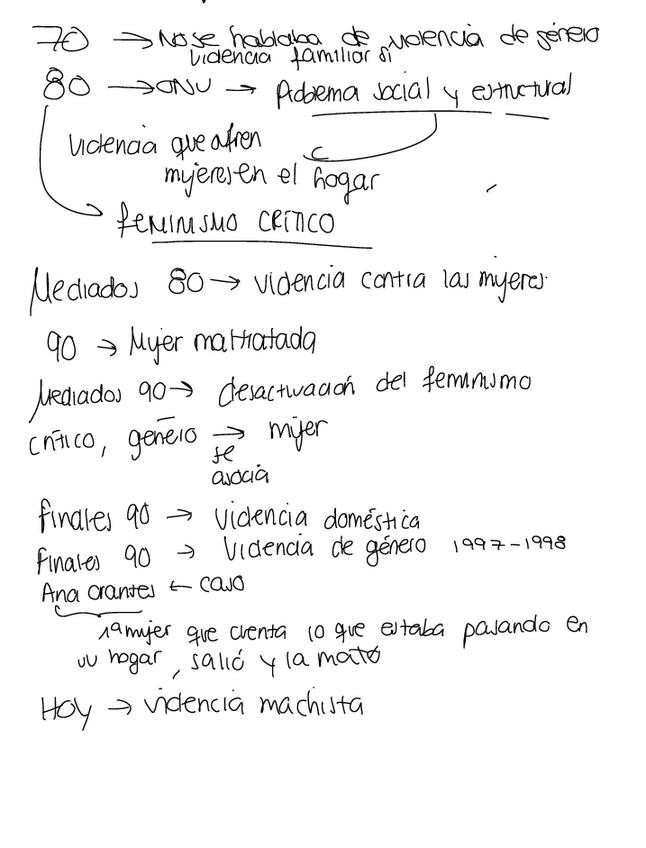 70 → No se hablaba de violencia de género
violencia familiar sí
80 → ONU → Problema social y estructural
violencia que sufren
mujeres en el hogar
FEMINISMO CRÍTICO
Mediados 80 → violencia contra las mujeres.
90 → Mujer maltratada
Mediados 90 → desactivación del feminismo
crítico, género → mujer
se
asocia
finales 90 → violencia doméstica
finales 90 → violencia de género 1997-1998
Ana orantes ← caso
1ª mujer que cuenta lo que estaba pasando en
su hogar, salió y la mató
HOY → violencia machista